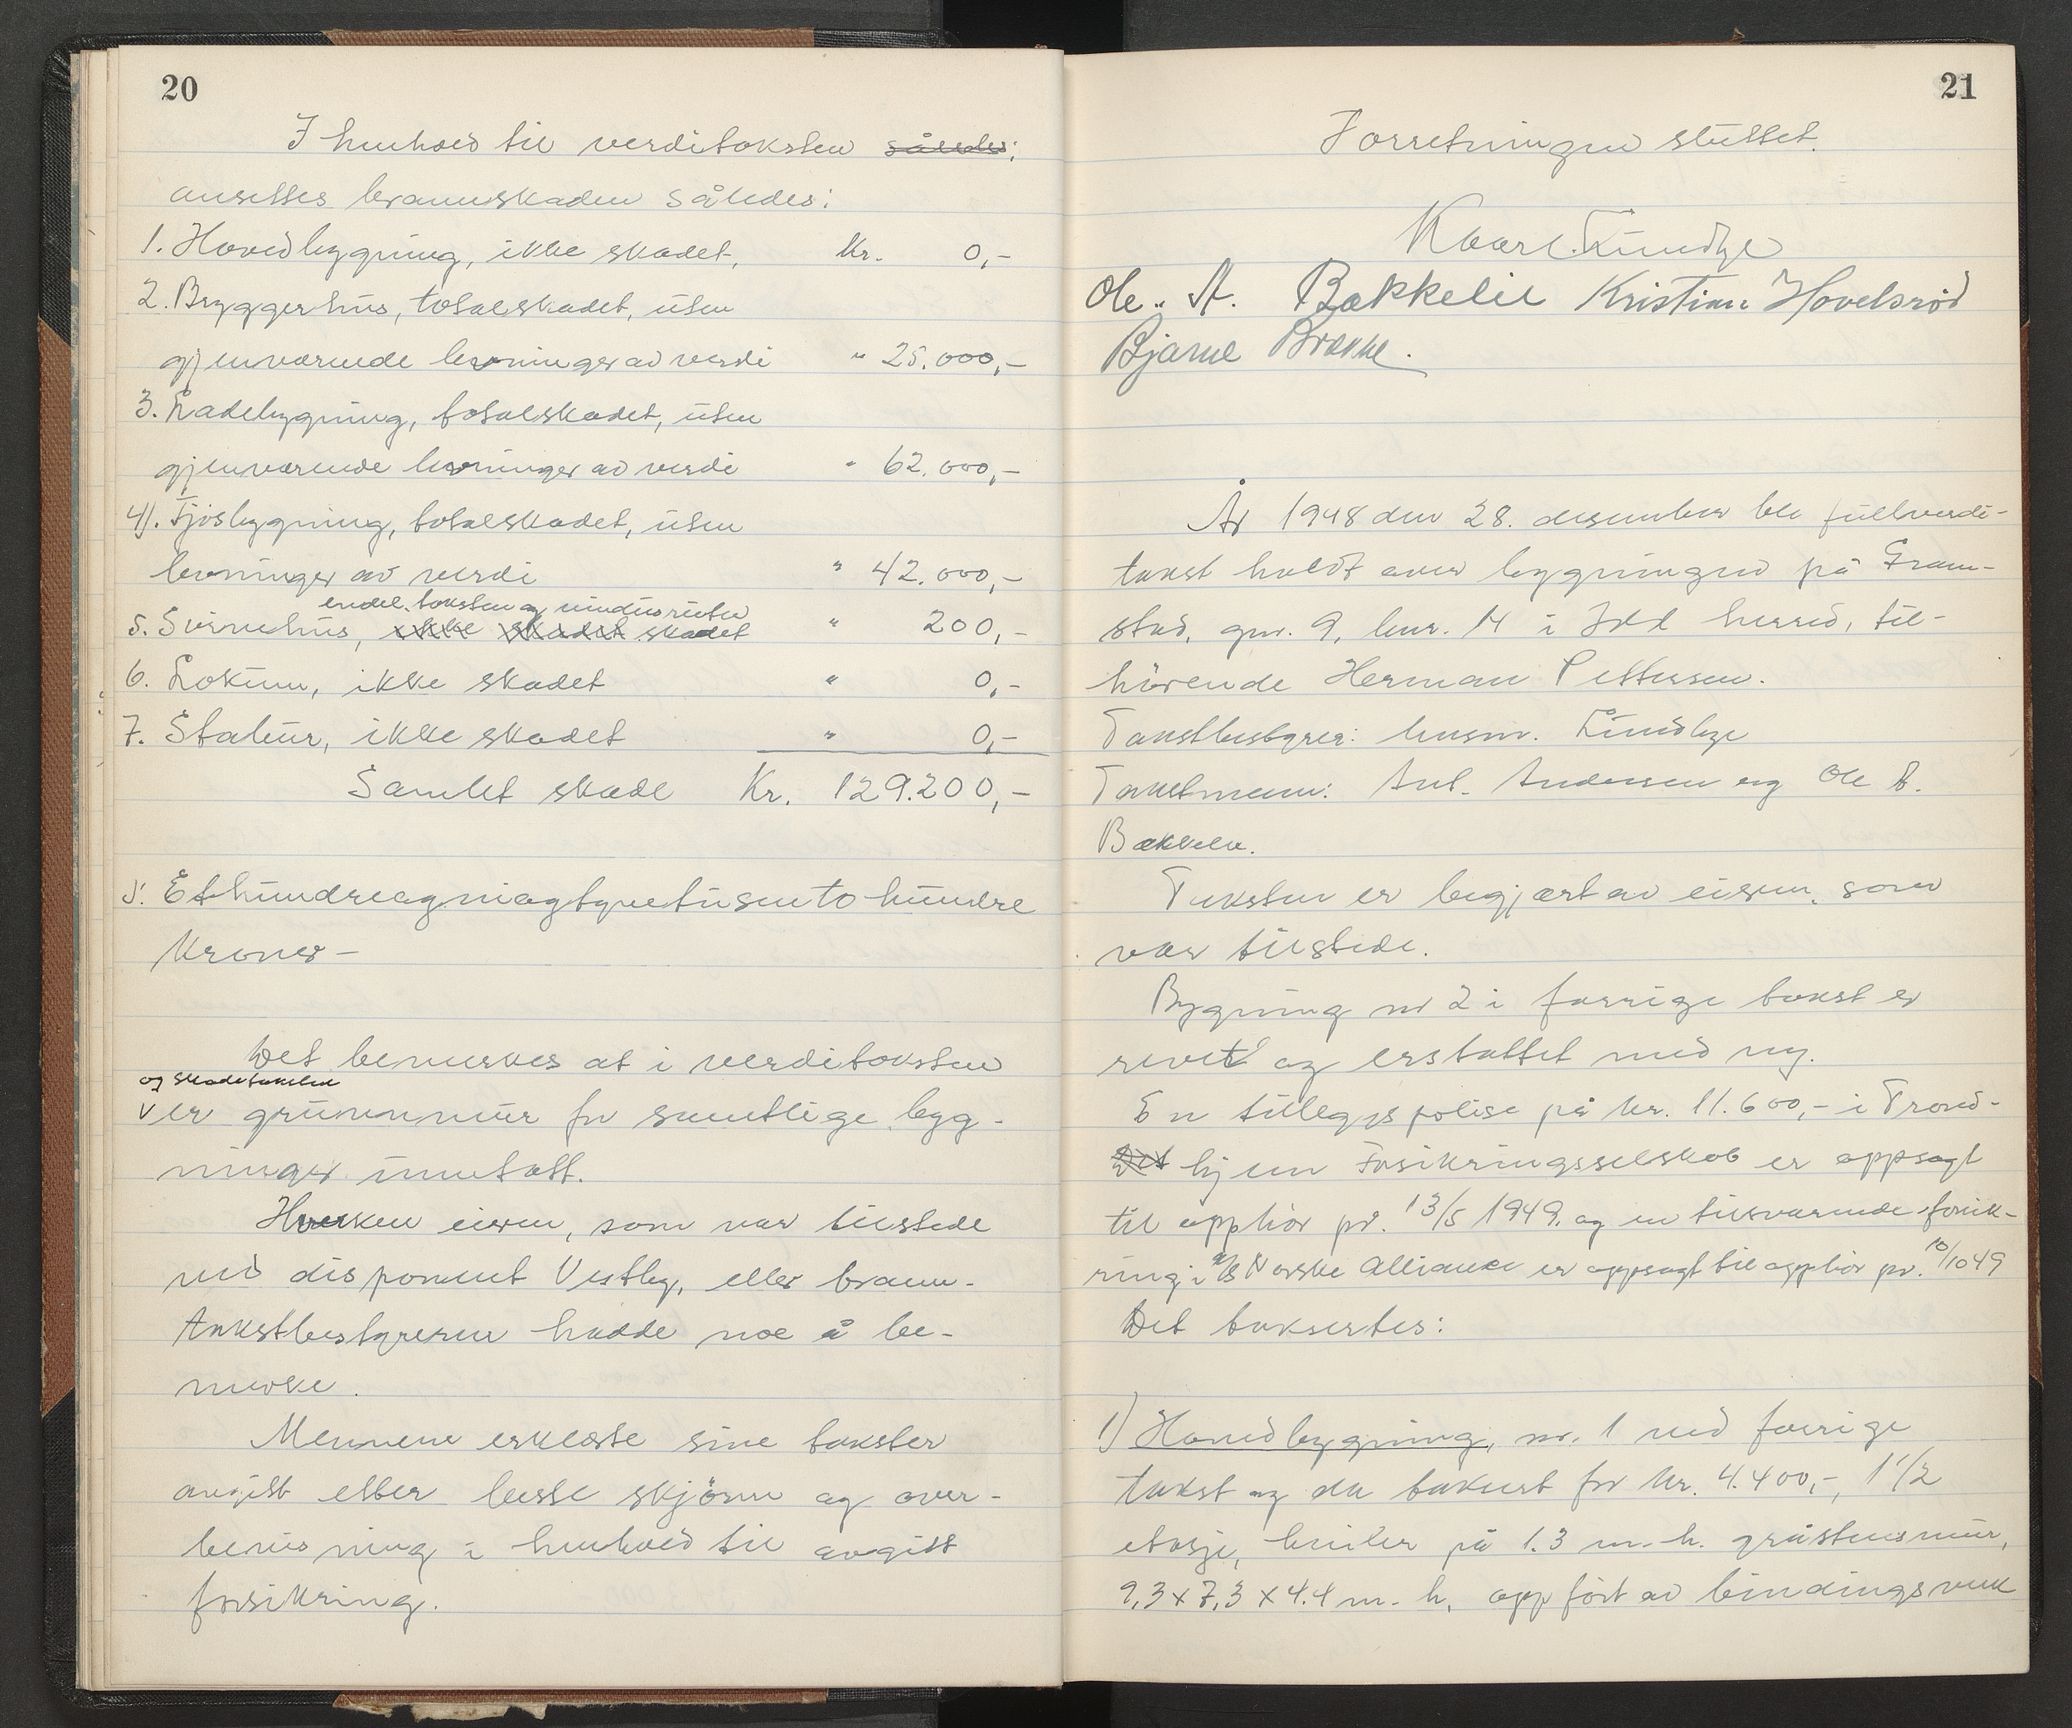 20
I henhold til verditaksten således:
ansettes brannskaden således:
1. Hovedbygning, ikke skadet, Kr. 0,-
2. Bryggerhus, totalskadet, uten
gjenværende levninger av verdi " 25.000,-
3. Ladebygning, totalskadet, uten
gjenværende levninger av verdi " 62.000,-
4). Fjøsbygning, totalskadet, uten
levninger av verdi " 42.000,-
endel. taksten og vindusruter
5. Svinehus, ikke skadet skadet " 200,-
6. Lokum, ikke skadet " 0,-
7. Stabur, ikke skadet " 0,-
Samlet skade Kr. 129.200,-
Ethundreogniogtyvetusentohundre
kroner-
Det bemerkes at i verditaksten
og skadetaksten
V er grunnmur for samtlige byg-
ninger inntatt.
Hverken eieren, som var tilstede
ved disponent Vestby, eller brann-
takstbestyreren hadde noe å be-
merke.
Mennene erklærte sine takster
avgitt etter beste skjønn og over-
bevisning i henhold til avgitt
forsikring.
21
Forretningen sluttet.
Kaare Lundbye
Ole. A. Bakkelie Kristian Hovelsrød
Bjarne Brække.
År 1948 den 28. desember ble fullverdi-
takst holdt over bygningene på Gram-
stad, gnr. 9, bnr. 14 i Idd herred, til-
hørende Herman Pettersen.
Takstbestyrer: lensm. Lundbye
Takstmenn: Ant. Andersen og Ole A.
Bakkelie.
Taksten er begjært av eieren, som
var tilstede.
Bygning nr 2 i forrige takst er
revet og erstattet med ny.
En tilleggspolise på kr. 11.600,- i Trond-
Det hjem Forsikringsselskab er oppsagt
til opphør pr. 13/5 1949. og en tilsvarende forsik-
ring i A/S Norske Alliance er oppsagt til opphør pr. 10/10 49
Det takseres:
1) Hovedbygning, nr. 1 ved forrige
takst og da taksert for kr. 4.400,-, 1 1/2
etasje, hviler på 1.3 m. h. gråstensmur,
9,3 x 7,3 x 4.4 m. h. oppført av bindingsverk